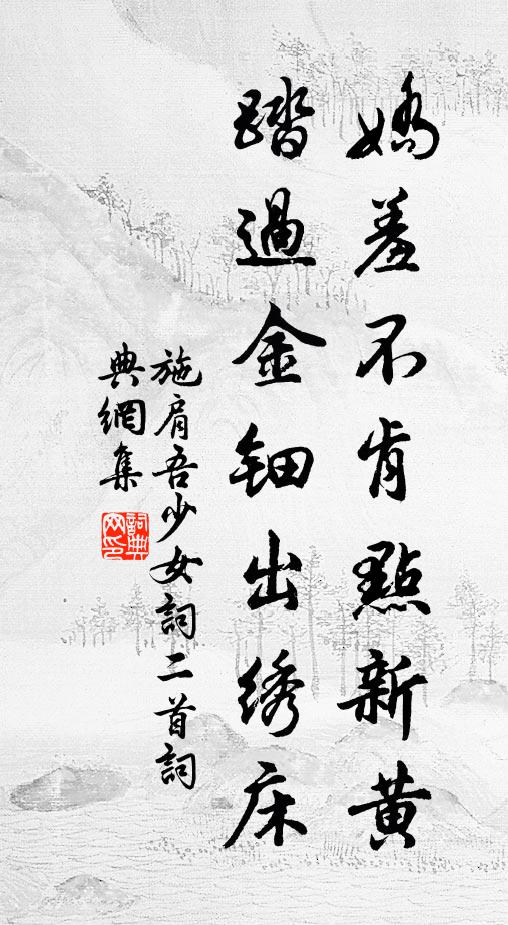 嬌羞不肯點新黄
踏過金鈿出绣床
施肩吾少女詞二首詞
典網集
詞典
网印